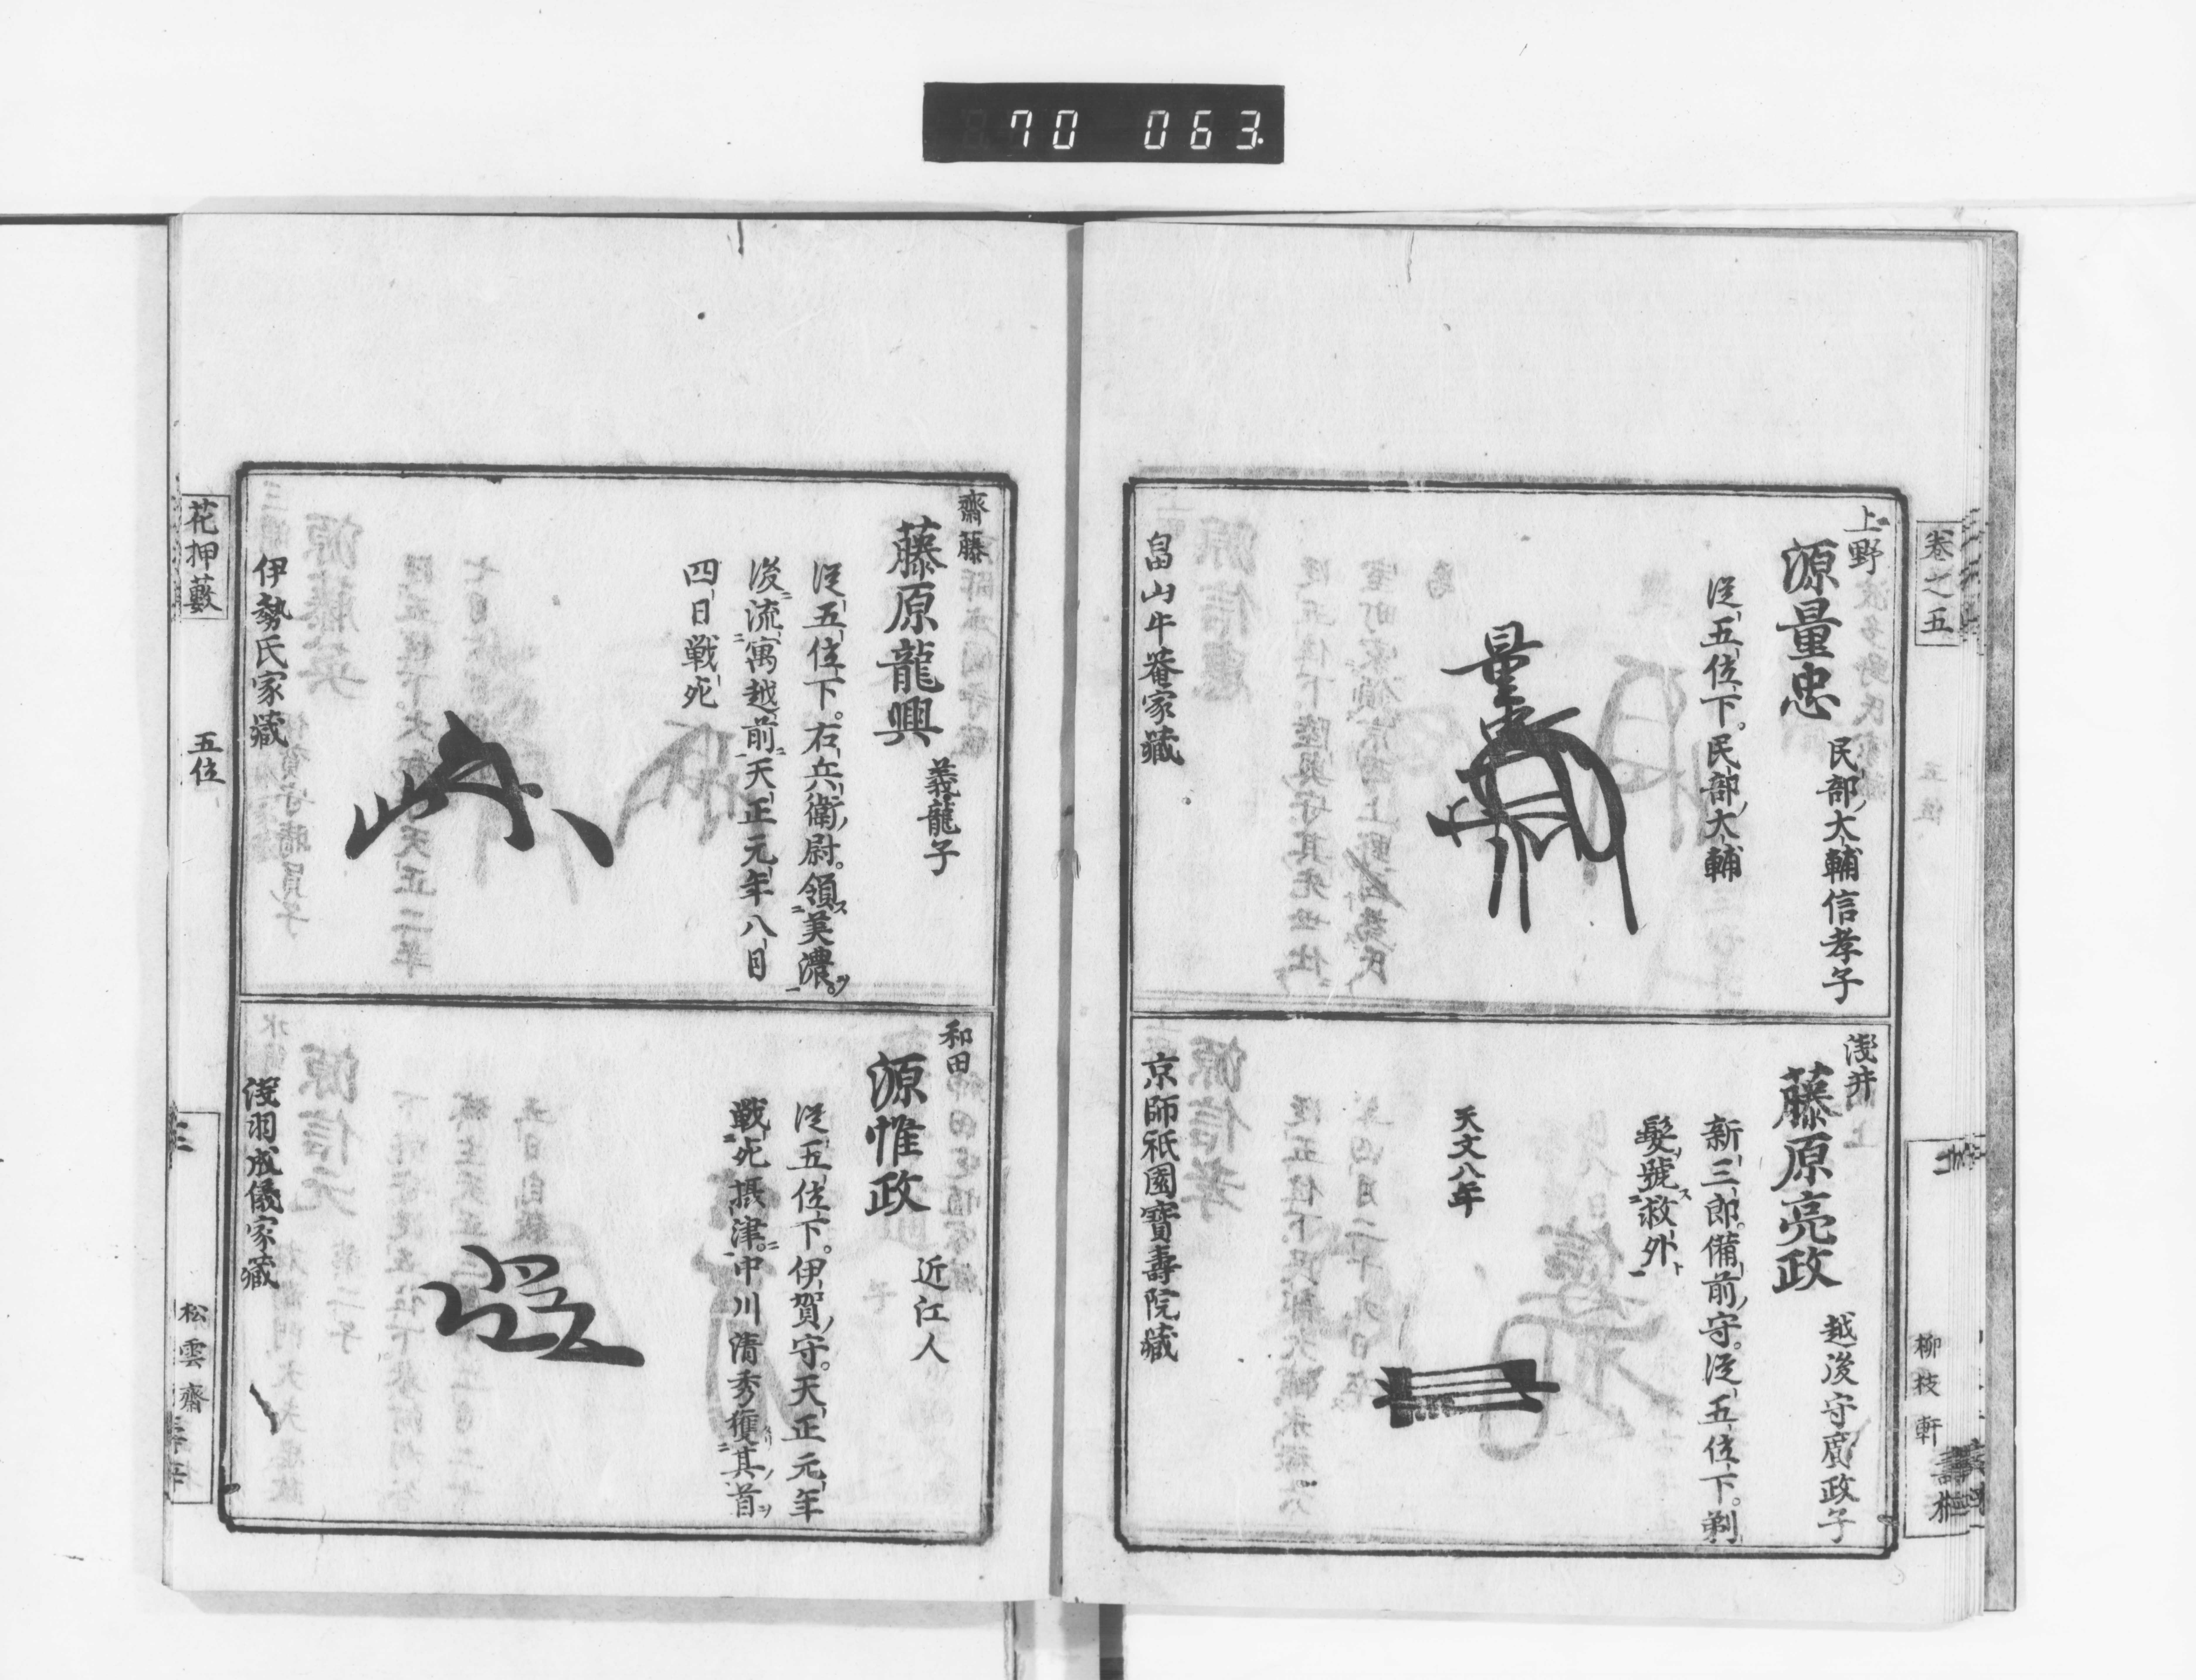 70 063
卷之五
上野
源量忠
民部大輔信孝子
從五位下。民部大輔
量忠
畠山牛菴家藏
淺井
藤原亮政
越後守
政子
新三郎。備前守。從五位下。剃
髮號救外
天文八年
京師祇園寶壽院藏
柳枝軒
齋藤
藤原龍興
義龍子
從五位下。右兵衛尉。領美濃。
後流寓越前天正元年八月
四日戰死
伊勢氏家藏
和田
源惟政
近江人
從五位下。伊賀守。天正元年
戰死攝津。中川清秀獲其首
淺羽成儀家藏
花押藪
五位
松雲齋